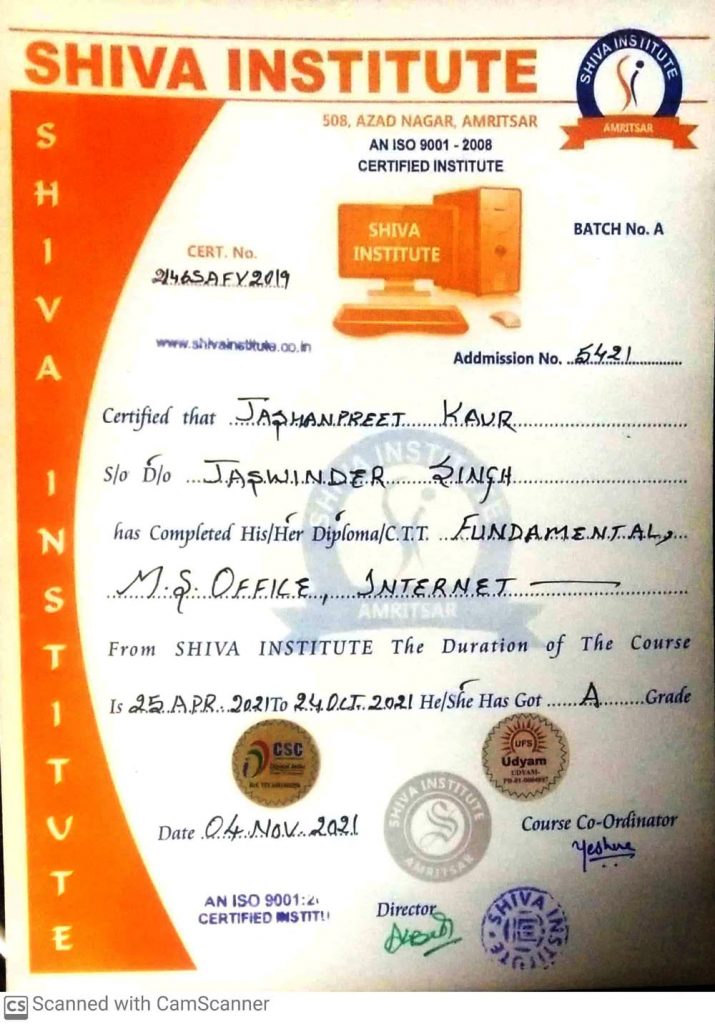 SHIVA INSTITUTE
SHIVA INSTITUTE
AMRITSAR
508, AZAD NAGAR, AMRITSAR
AN ISO 9001 - 2008
CERTIFIED INSTITUTE
SHIVA
INSTITUTE
BATCH No. A
CERT. No.
2146SAFV2019
www.shivainstitute.co.in
Addmission No. 5421
Certified that JASHANPREET KAUR
S/o D/o JASWINDER SINGH
has Completed His/Her Diploma/C.T.T. FUNDAMENTAL,
M.S. OFFICE, INTERNET
From SHIVA INSTITUTE The Duration of The Course
Is 25 APR. 2021 To 24 OCT. 2021 He/She Has Got A Grade
SHIVA INSTITUTE
AMRITSAR
CSC
UFS
Udyam
UDYAM-
SHIVA INSTITUTE
S
AMRITSAR
Date 04 Nov. 2021
Course Co-Ordinator
AN ISO 9001:2
CERTIFIED INSTITU
Director
SHIVA INSTITUTE
SHIVA INSTITUTE
CS Scanned with CamScanner